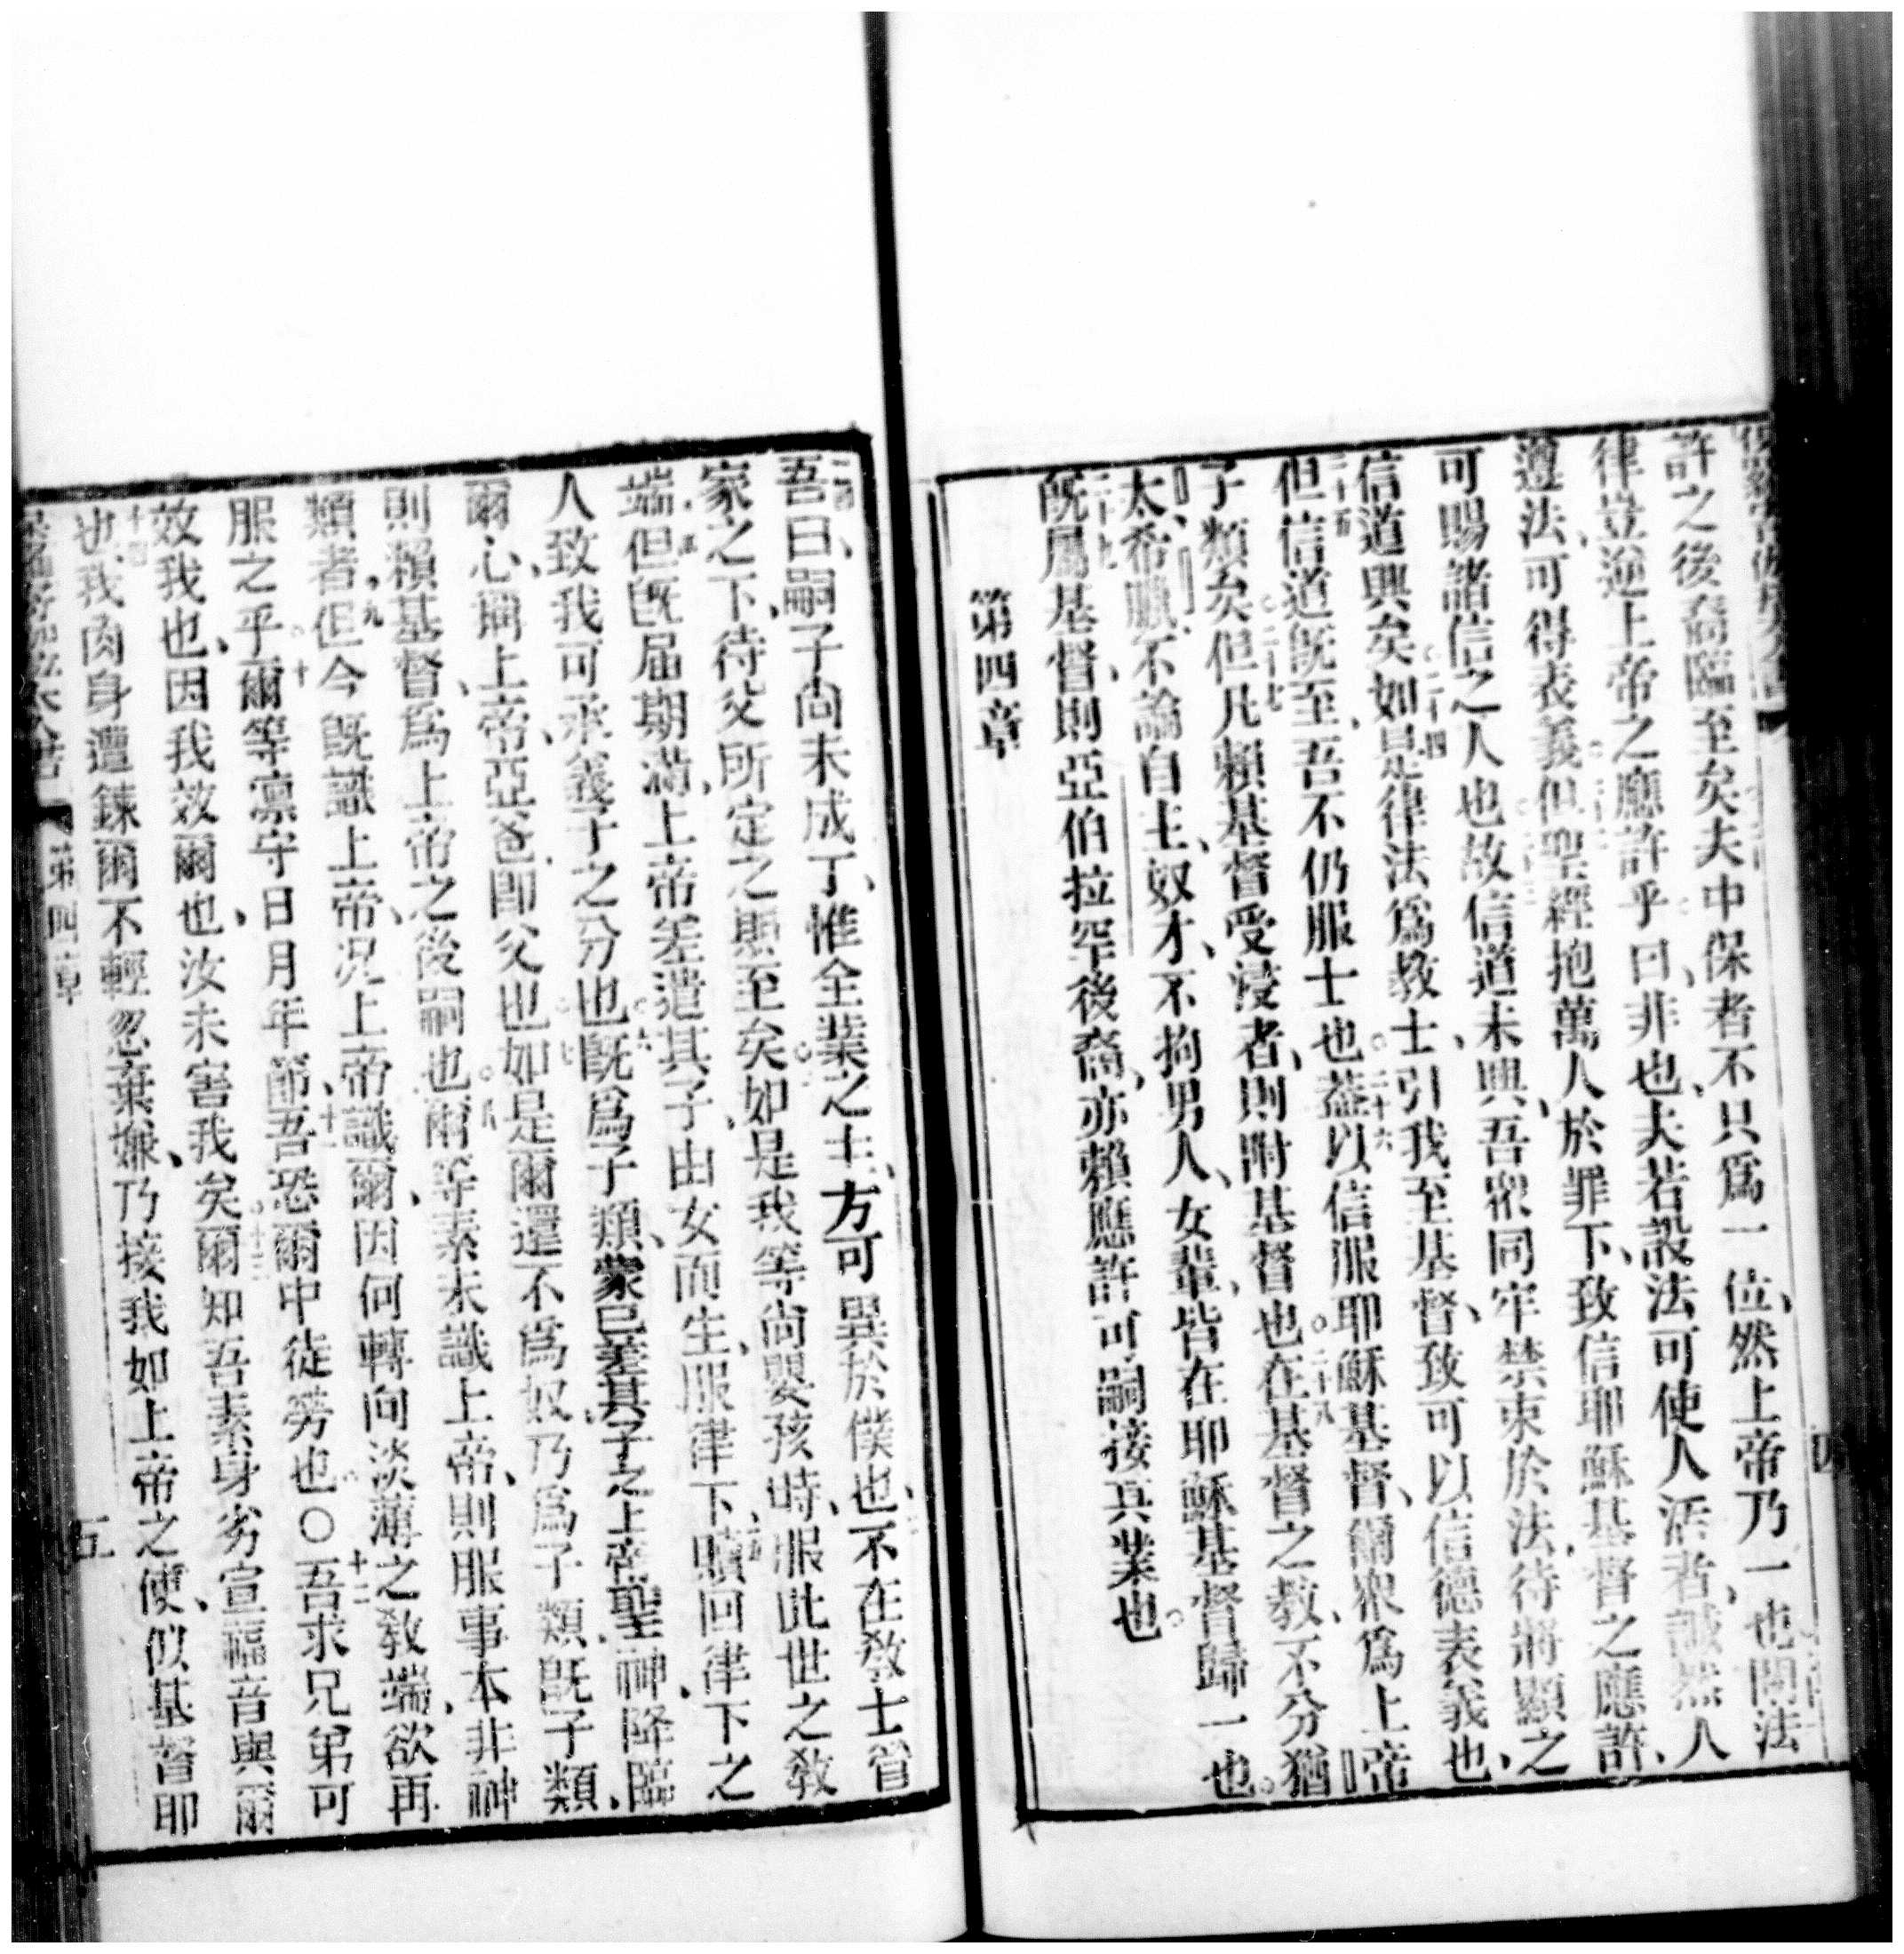 許之後裔臨至矣夫中保者不只爲一位、然上帝乃一也關法
律豈逆上帝之應許乎曰、非也、夫若設法可使人活者、誠然人
遵法、可得表義但聖經抱萬人於罪下、致信耶穌基督之應許、
可賜諸信之人也故信道未興、吾眾同牢禁束於法、待將顯之
信道興矣如是律法爲教士、引我至基督、致可以信德表義也、
但信道既至、吾不仍服士也蓋以信服耶穌基督、爾眾爲上帝
子類矣但凡賴基督受浸者、則附基督也在基督之教、不分猶
太、希臘、不論自主、奴才、不拘男人、女輩、皆在耶穌基督歸一也。
既屬基督、則亞伯拉罕後裔、亦賴應許可嗣接其業也。
第四章
吾曰、嗣子尚未成丁、惟全業之主、方可異於僕也、不在教士管
家之下、待父所定之期至矣如是我等尚嬰孩時、服此世之教
端但既屆期滿、上帝差遣其子、由女而生、服律下、贖回律下之
人、致我可承義子之分也既爲子類、蒙已差其子之上帝聖神、降臨
爾心、稱上帝、亞爸即父也如是爾還不爲奴、乃爲子類既子類、
則賴基督、爲上帝之後嗣也爾等素未識上帝、則服事本非神
類者、但今既識上帝、況上帝識爾、因何轉向淡薄之教端、欲再
服之乎爾等凛守日月年節、吾恐爾中徒勞也〇吾求兄弟可
效我也、因我效爾也、汝未害我矣爾知吾素身劣宣福音與爾
也、我肉身遭鍊爾不輕忽棄嫌、乃接我如上帝之使、似基督耶
第四章
五